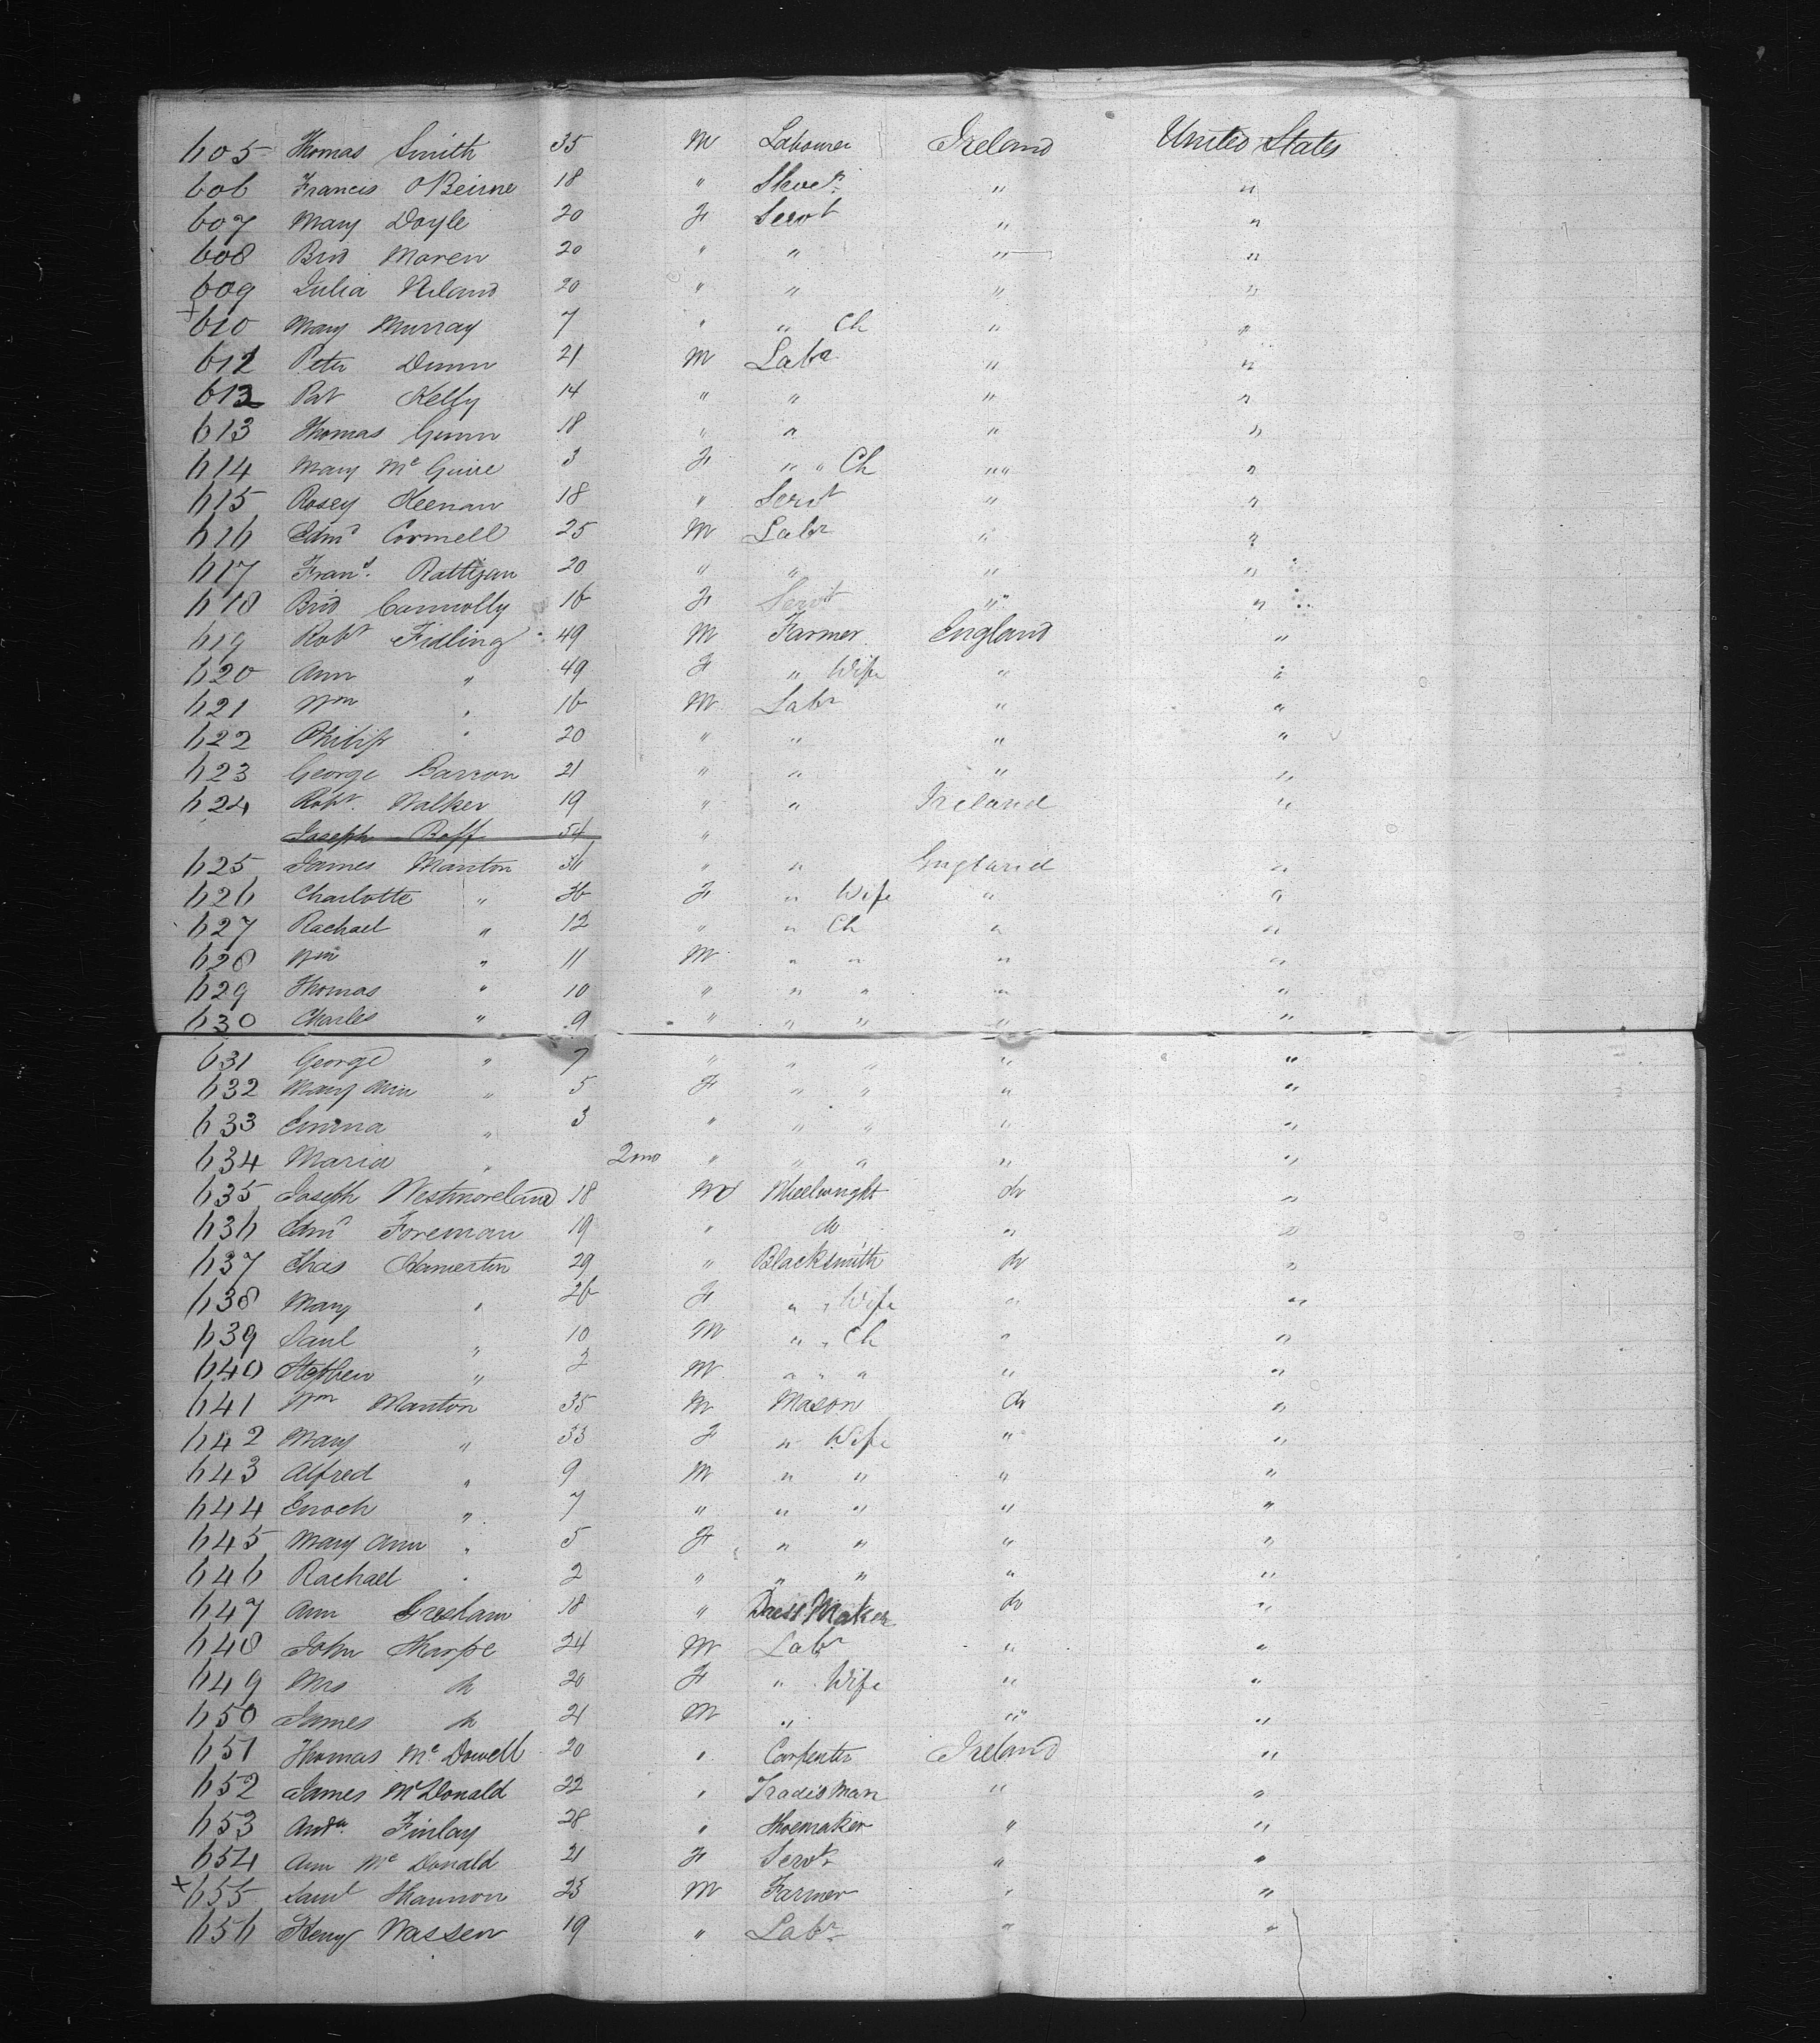 605 Thomas Smith 35 M Labourer Ireland United States
606 Francis O'Beirne 18 " " "
607 Mary Doyle 20 F Servt " "
608 Brid Moren 20 " " " "
609 Julia Niland 20 " " " "
+ 610 Mary Murray 7 " " Ch " "
612 Peter Dunn 21 M Labr " "
613 Pat Kelly 14 " " " "
613 Thomas Gunn 18 " " " "
614 Mary McGuire 3 F " " Ch " "
615 Rosey Keenan 18 " Servt " "
616 Edmd Cormell 25 M Labr " "
617 Frans. Rattigan 20 " " " "
618 Brid Connolly 16 F Servt " "
619 Robt Fidling 49 M Farmer England "
620 Ann " 49 F " Wife " "
621 Wm " 16 M Labr " "
622 Philip " 20 " " " "
623 George Barron 21 " " " "
624 Robt. Walker 19 " " Ireland "
Joseph Roff 54 "
625 James Manton 36 " " England "
626 Charlotte " 36 F " Wife " "
627 Rachael " 12 " " Ch " "
628 Wm " 11 M " " " "
629 Thomas " 10 " " " " "
630 Charles " 9 " " " " "
631 George " 7 " " " " "
632 Mary Ann " 5 F " " " "
633 Emma " 3 " " " " "
634 Maria " 2mo " " " " "
635 Joseph Westmoreland 18 M Wheelwright do "
636 Edmd Foreman 19 " do " "
637 Chas Hamerton 29 " Blacksmith do "
638 Mary " 26 F " " Wife " "
639 Saul " 10 M " " Ch " "
640 Stephen " 2 M " " " " "
641 Wm Manton 35 M Mason do "
642 Mary " 33 F " Wife " "
643 Alfred " 9 M " " " "
644 Enoch " 7 " " " " "
645 Mary Ann " 5 F " " " "
646 Rachael " 2 " " " " "
647 Ann Gresham 18 " Dress Maker do "
648 John Sharpe 24 M Labr " "
649 Mrs do 20 F " Wife " "
650 James do 21 M " " "
651 Thomas McDowell 20 " Carpenter Ireland "
652 James McDonald 22 " Tradesman " "
653 Andw. Finlay 28 " Shoemaker " "
654 Ann McDonald 21 F Servt " "
+ 655 Saml Shannon 23 M Farmer " "
656 Henry Wassen 19 " Labr " "